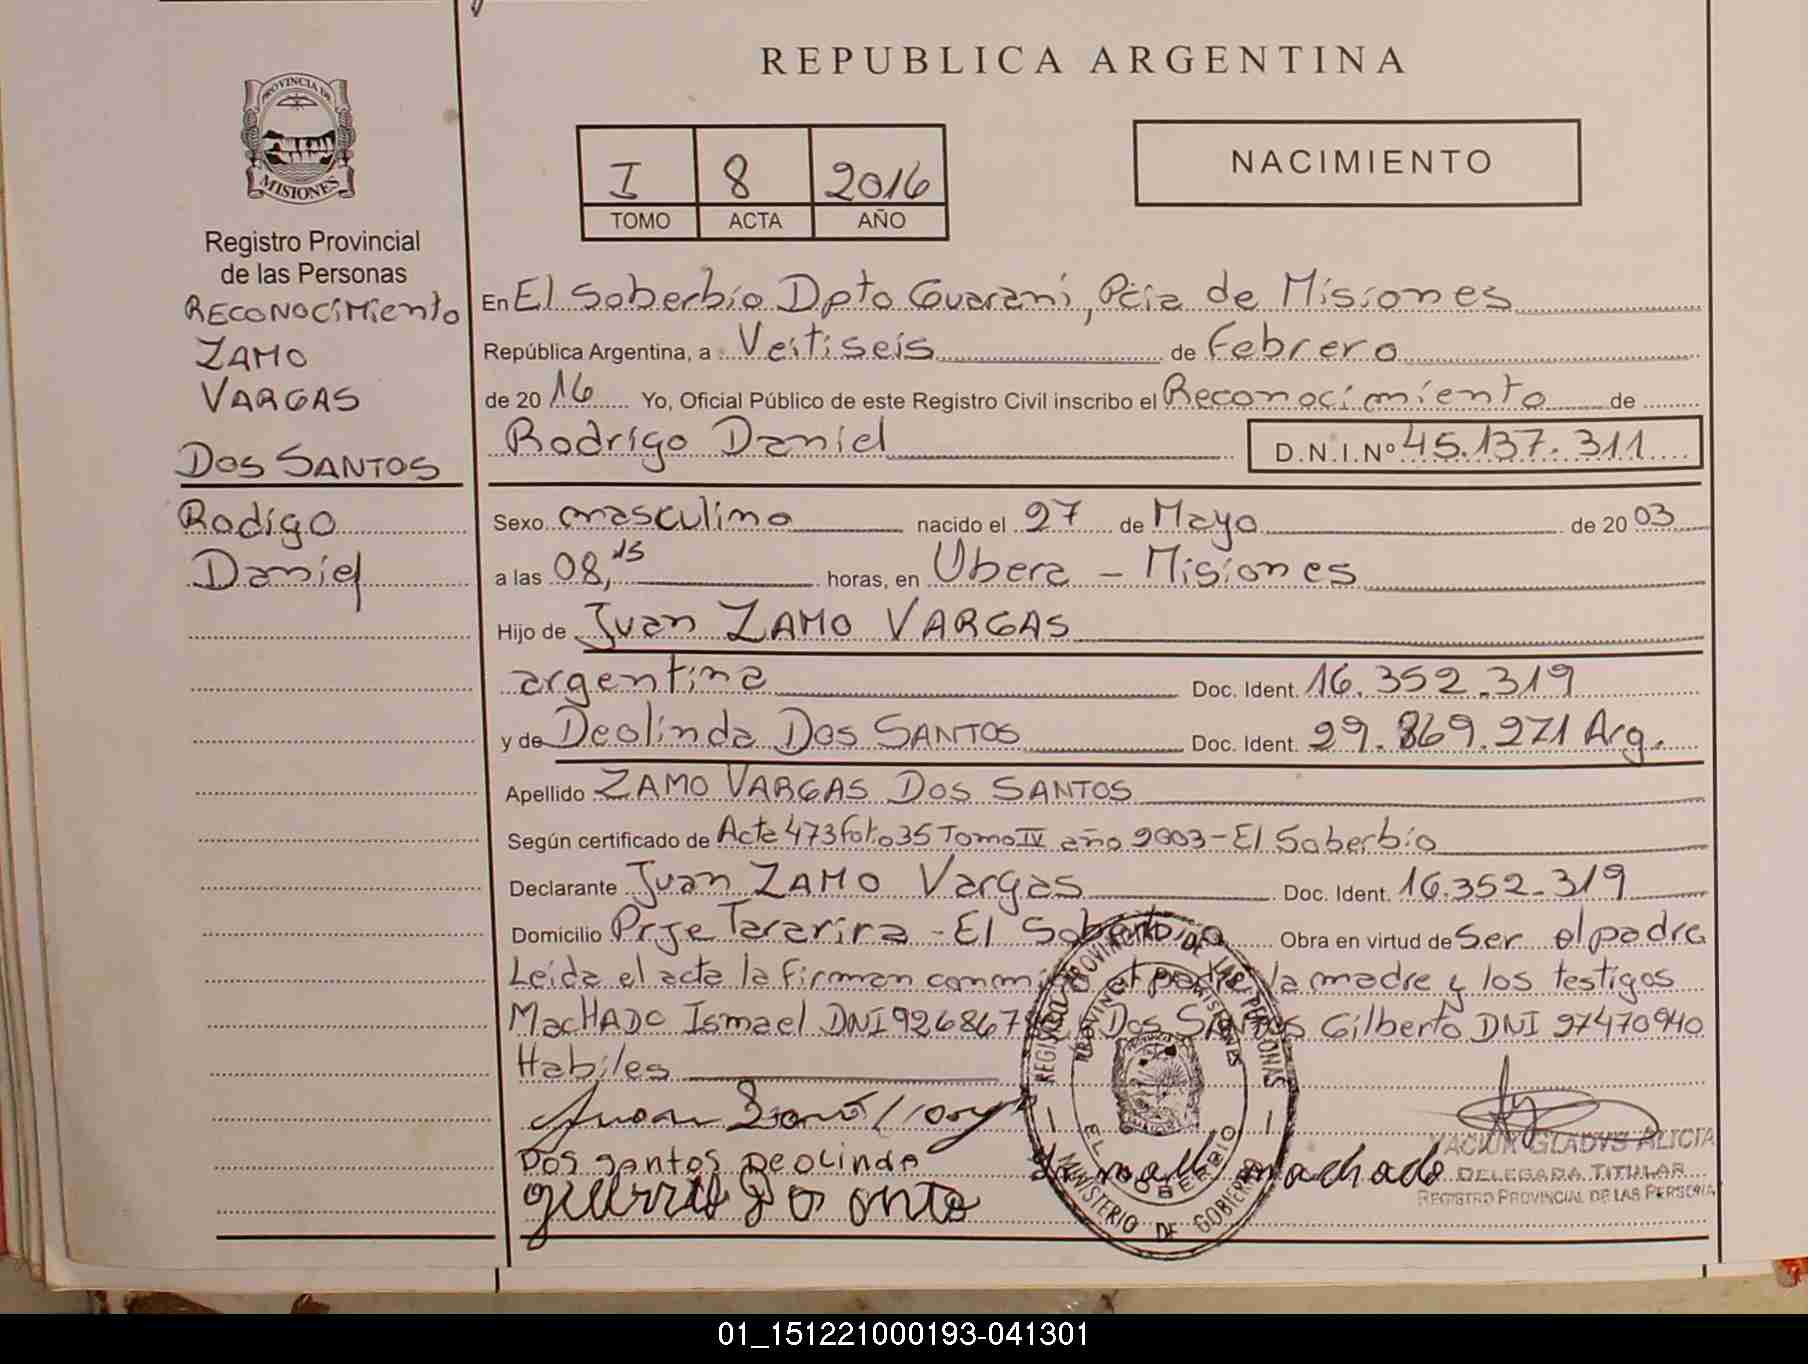 REPUBLICA ARGENTINA
PROVINCIA DE
MISIONES
Registro Provincial
de las Personas
RECONOCIMIENTO
ZAMO
VARGAS
DOS SANTOS
Rodigo
Daniel
I 8 2016
TOMO ACTA AÑO
NACIMIENTO
En El Soberbio Dpto Guarani, Pcia de Misiones
República Argentina, a Veitiseis de Febrero
de 2016 Yo, Oficial Público de este Registro Civil inscribo el Reconocimiento de
Rodrigo Daniel D.N.I.Nº 45.137.311
Sexo masculino nacido el 27 de Mayo de 2003
a las 08,15 horas, en Obera - Misiones
Hijo de Juan ZAMO VARGAS
argentina Doc. Ident. 16.352.319
y de Deolinda Dos SANTOS Doc. Ident. 29.869.271 Arg.
Apellido ZAMO VARGAS DOS SANTOS
Según certificado de Acta 473 folio 35 Tomo IV año 2003 - El Soberbio
Declarante Juan ZAMO Vargas Doc. Ident. 16.352.319
Domicilio Prje Tararira - El Soberbio Obra en virtud de Ser el padre
Leida el acta la firman conmigo el padre la madre y los testigos
MacHADO Ismael DNI 926867 Dos SANTOS Gilberto DNI 27470940
Habiles
Dos santos Deolinda
machado
REGISTRO PROVINCIAL DE LAS PERSONAS
PROVINCIA MISIONES
EL SOBERBIO
MINISTERIO DE GOBIERNO
GLADYS ALICIA
DELEGADA TITULAR
REGISTRO PROVINCIAL DE LAS PERSONA
01_151221000193-041301